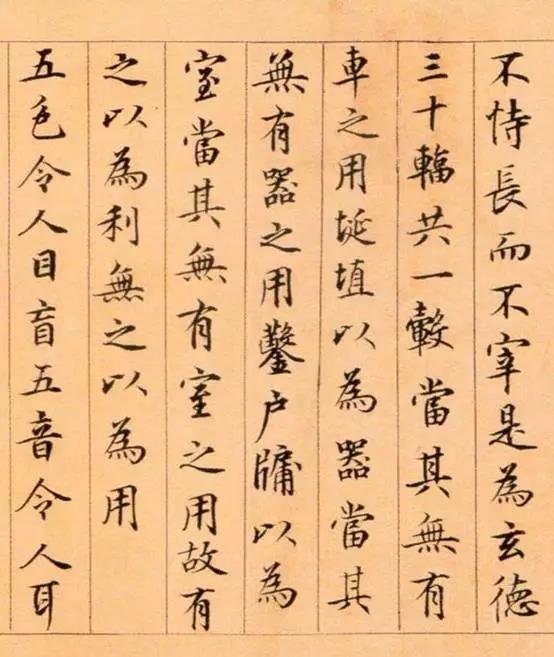 不恃長而不宰是為玄德
三十輻共一轂當其無有
車之用埏埴以為器當其
無有器之用鑿户牖以為
室當其無有室之用故有
之以為利無之以為用
五色令人目盲五音令人耳